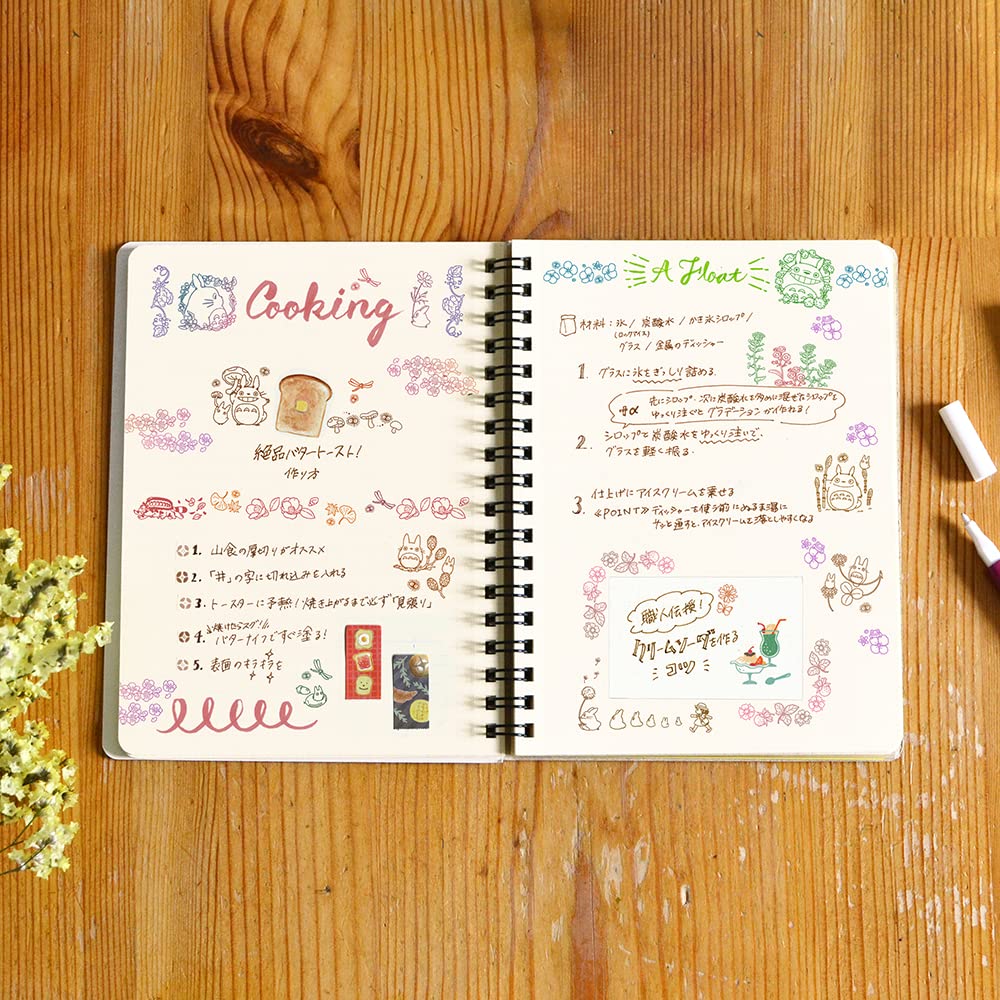 Cooking
絶品バタートースト!
作り方
1. 山食の厚切りがオススメ
2. 「井」の字に切れ込みを入れる
3. トースターに予熱!焼き上がるまで必ず「見張り」
焼けたらスグ!!
4. バターナイフですぐ塗る!
5. 表面のキラキラを
A Float
材料:氷/炭酸水/かき氷シロップ/
(ロックアイス)
グラス/金属のディッシャー
1. グラスに氷をぎっしり詰める.
先にシロップ・次に炭酸水を多めに混ぜたシロップを
+α ゆっくり注ぐとグラデーションが作れる!
2. シロップと炭酸水をゆっくり注いで.
グラスを軽く振る.
3. 仕上げにアイスクリームを乗せる
≪POINT≫ディッシャーを使う前にぬるま湯に
サッと通すと、アイスクリームを落としやすくなる
職人伝授!
クリームソーダを作る
コツ